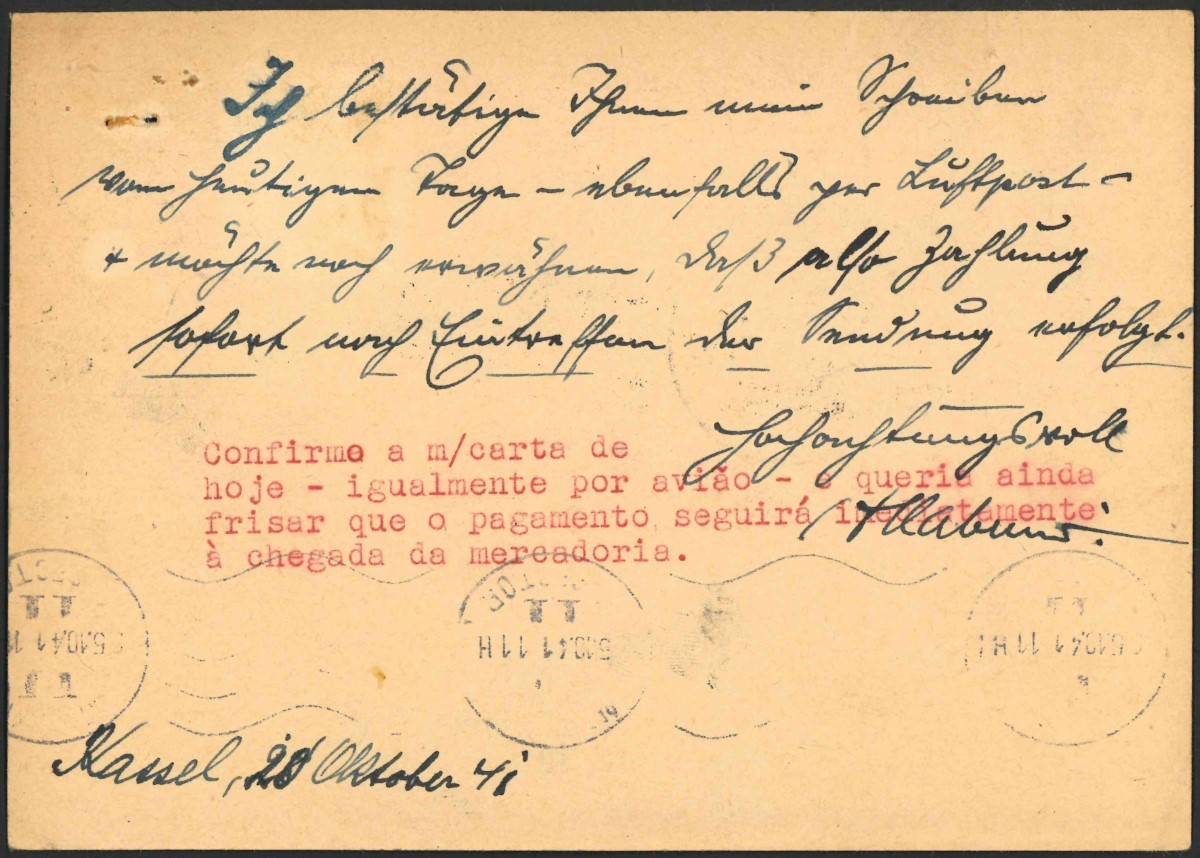 Ich bestätige Ihnen mein Schreiben
vom heutigen Tage – ebenfalls per Luftpost –
+ möchte noch erwähnen, daß also Zahlung
sofort nach Eintreffen der Sendung erfolgt.
Hochachtungsvoll
Confirmo a m/carta de
hoje - igualmente por avião - e queria ainda
frisar que o pagamento seguirá imediatamente
à chegada da mercadoria.
11 H
5.10.41 11 H
Kassel, 28 Oktober 41